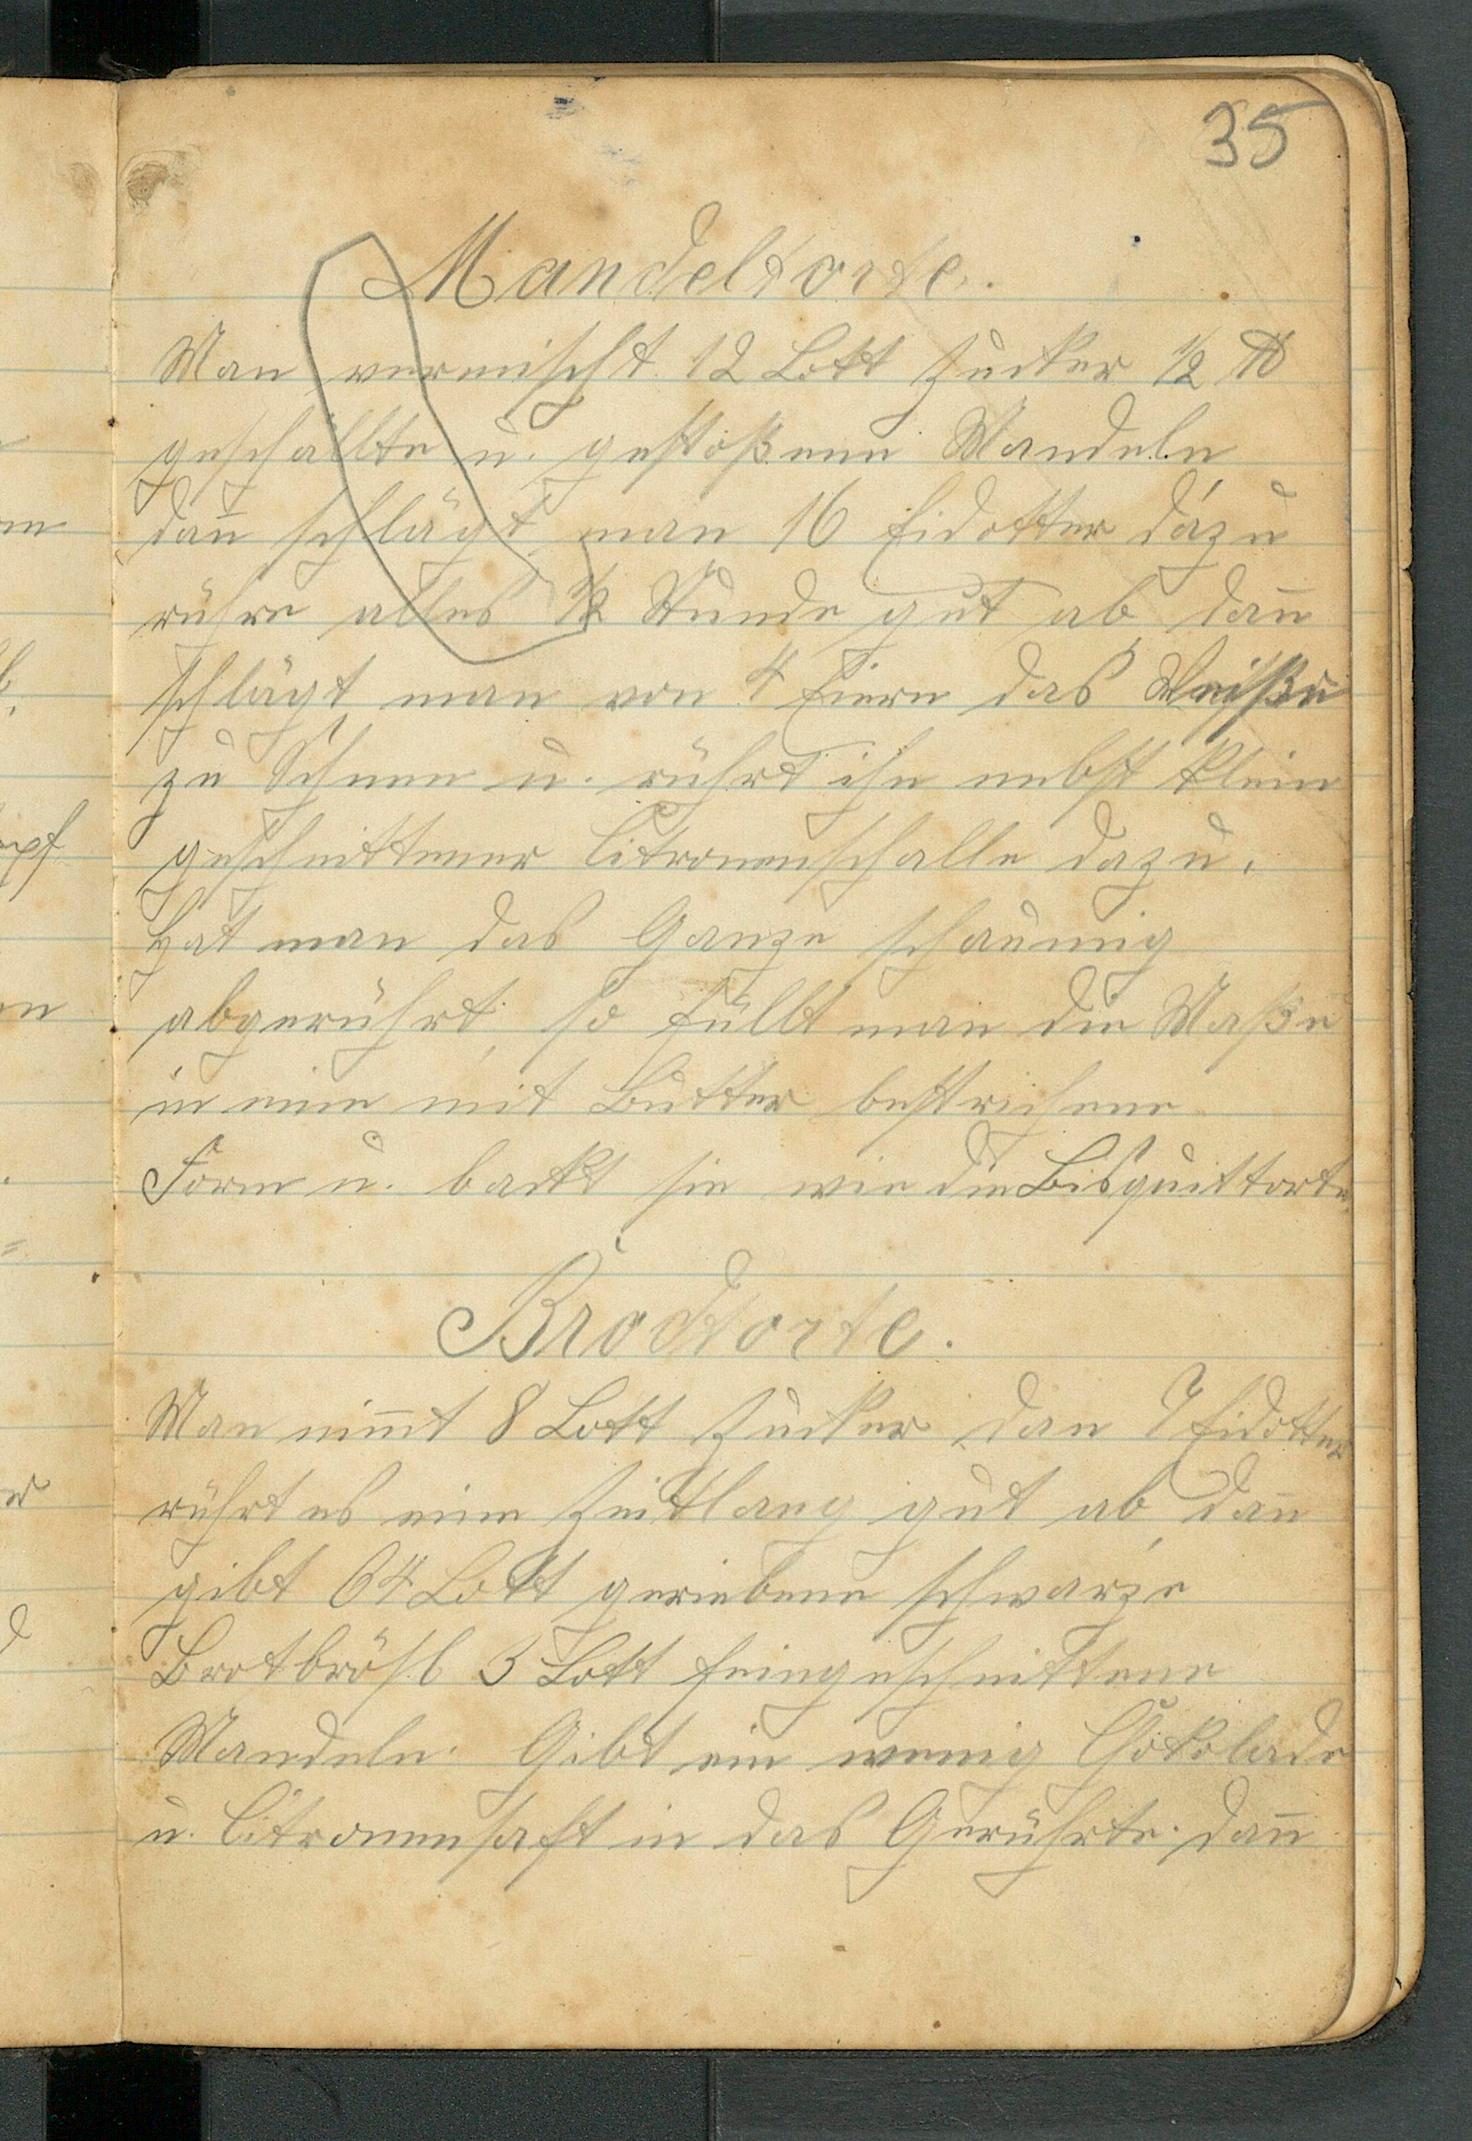 35
Mandeltorte.
Man vermischt 12 Lott Zucker 1/2 ℔
geschällte u. gestoßene Mandeln
dan̄ schlägt man 16 Eidotter dazu
rühre alles 1/2 Stunde gut ab dan̄
schlägt man von 4 Eiern das Weiße
zu Schnee u. rührt ihn nebst klein
geschnittener Citronenschalle dazu.
Hat man das Ganze schaumig
abgerührt, so füllt man die Maße
in eine mit Butter bestrichene
Form u. backt sie wie die Bisquittorte.
Brodtorte.
Man nim̄t 8 Lott Zucker dan 7 Eidotter
rührt es eine Zeitlang gut ab, dan̄
gibt 64 Lott geriebene schwarze
Brotbrösl 3 Lott feingeschnittene
Mandeln. Gibt ein wenig Chokolade
u. Citronensaft in das Gerührte. dan̄